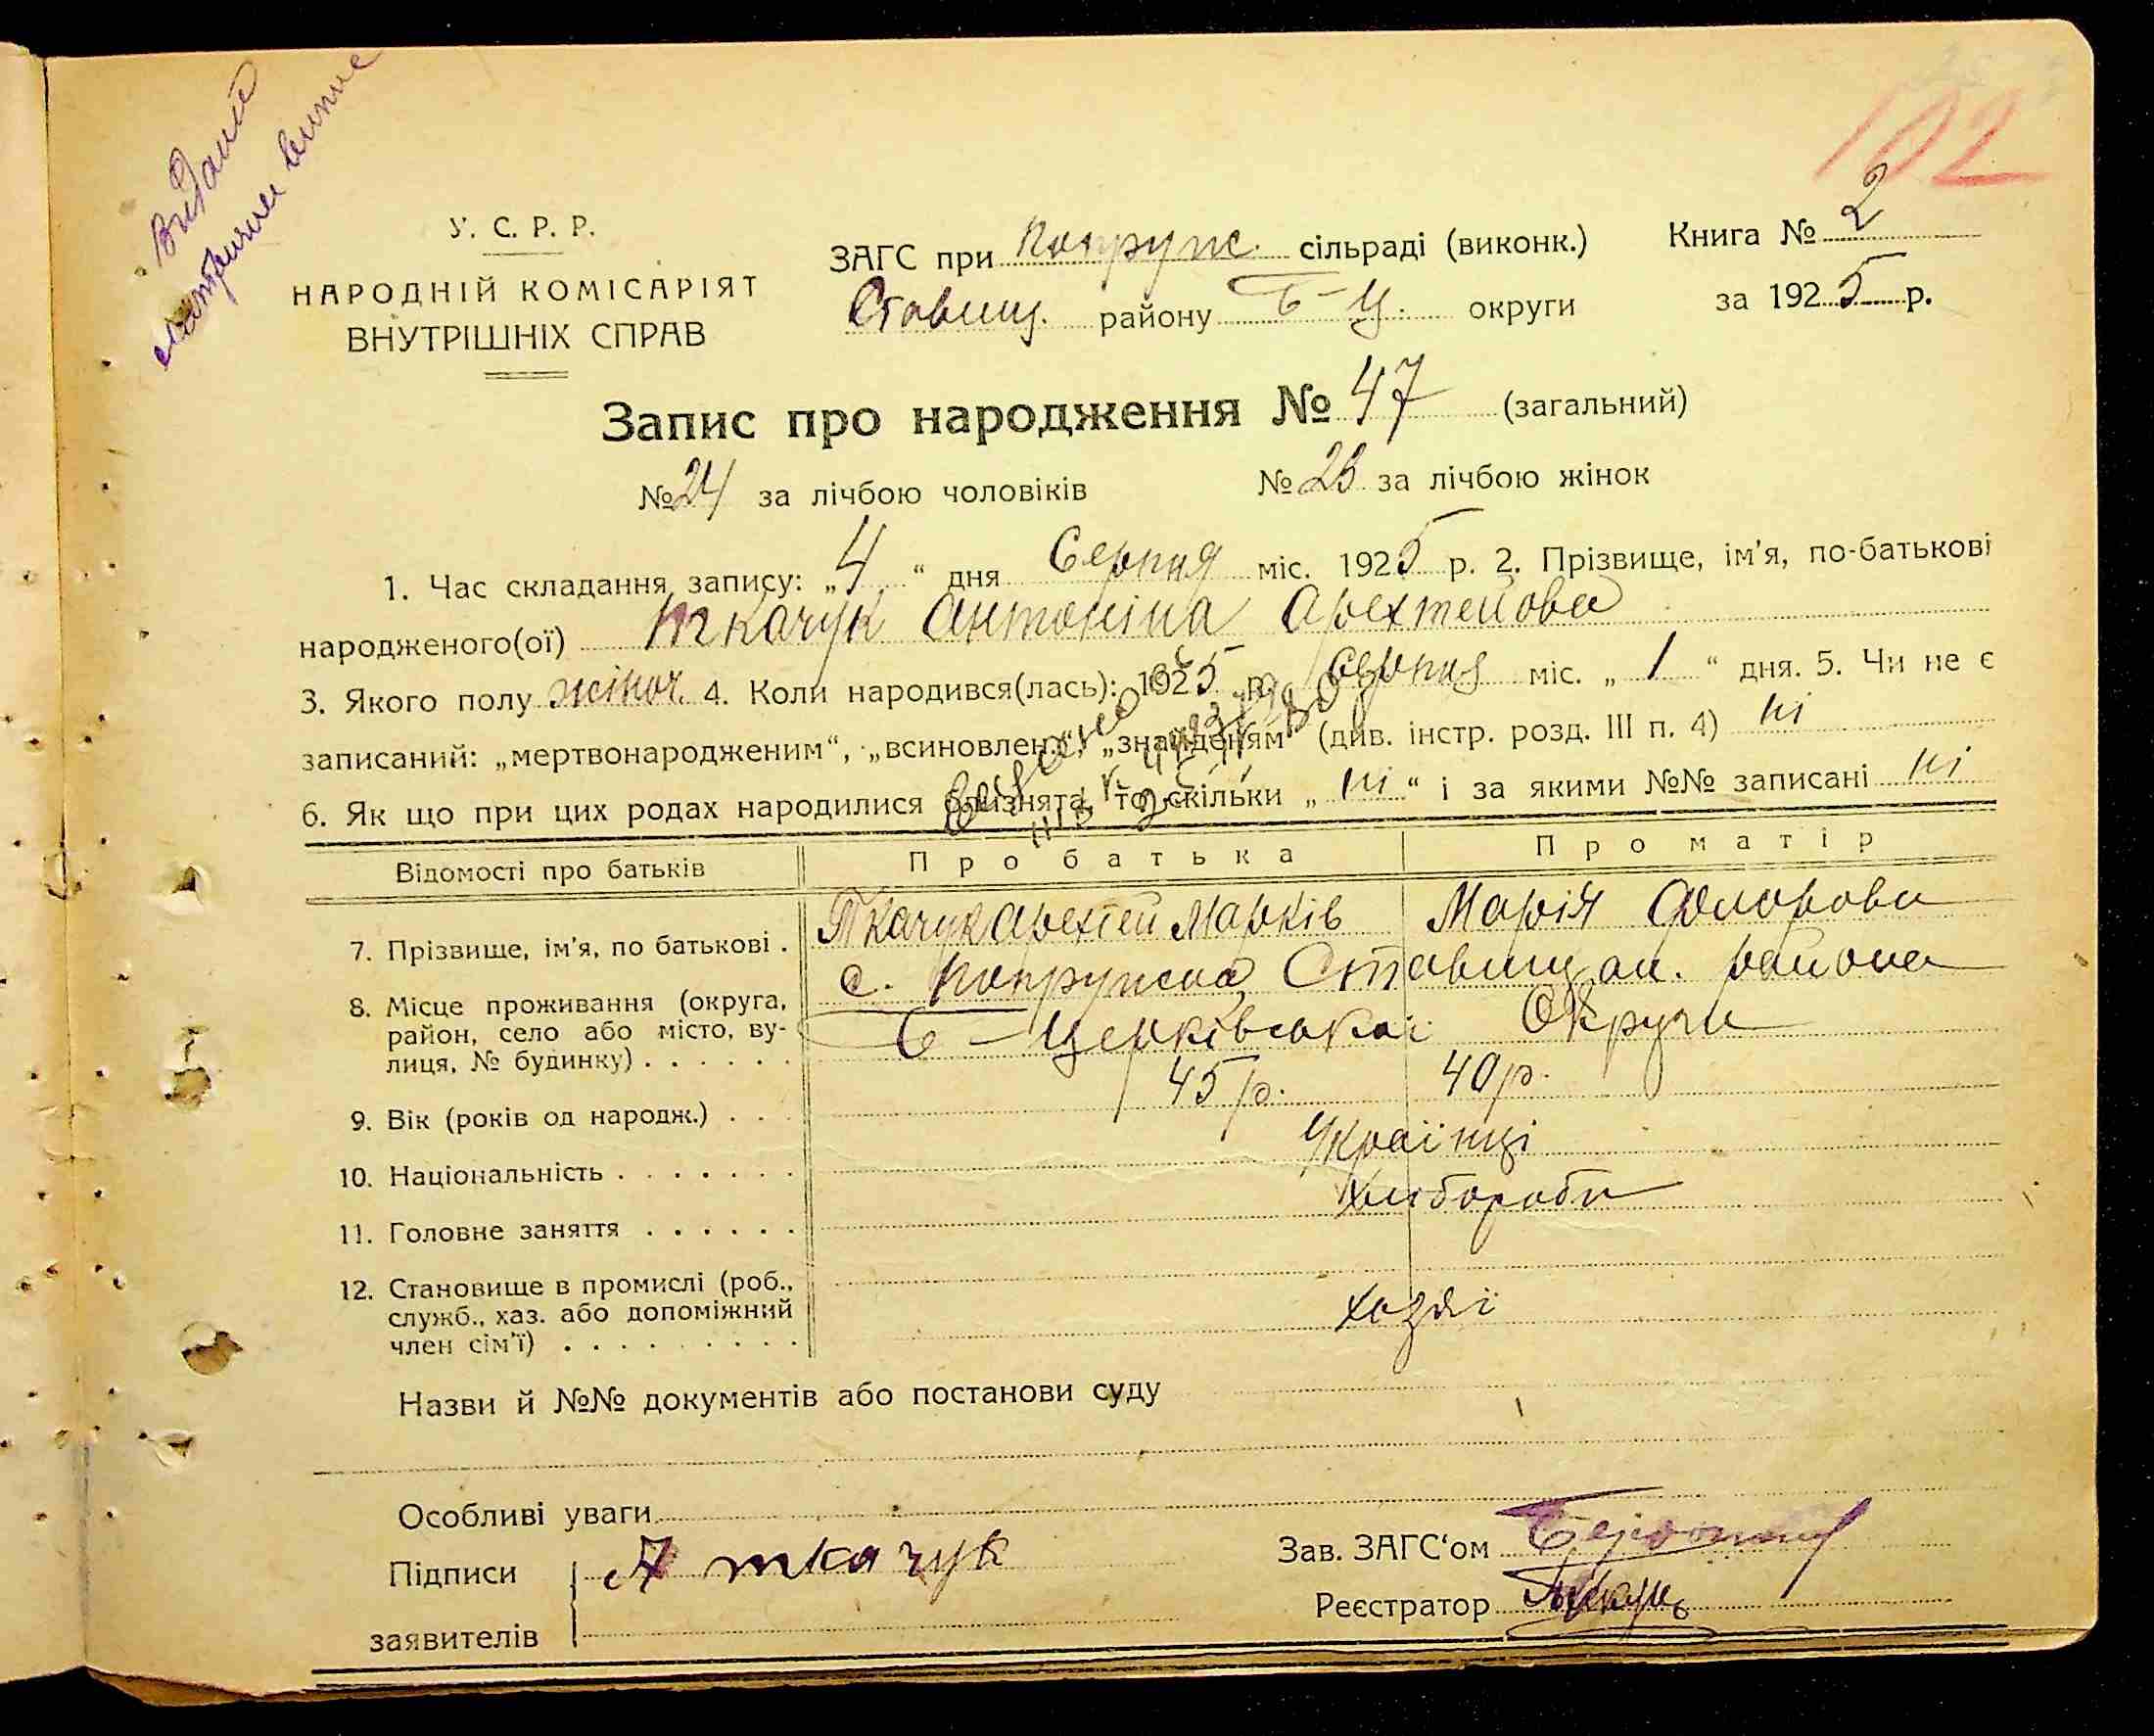 Видании
102
У. С. Р. Р.
НАРОДНІЙ КОМІСАРІЯТ
ВНУТРІШНІХ СПРАВ
ЗАГС при Попруж. сільраді (виконк.)
Ставищ. району Б-Ц. округи
Книга № 2
за 1925 р.
Запис про народження № 47 (загальний)
№ 24 за лічбою чоловіків № 23 за лічбою жінок
1. Час складання запису: „4“ дня Серпня міс. 1925 р. 2. Прізвище, ім'я, по-батькові
народженого(ої) Ткачук Антоніна Арехтейова
3. Якого полу жіноч. 4. Коли народився(лась): 1925 р. Серпня міс. „1“ дня. 5. Чи не є
записаний: „мертвонародженим“, „всиновлен.“, „знайденям“ (див. інстр. розд. III п. 4) ні
6. Як що при цих родах народилися близнята, то скільки „ні“ і за якими №№ записані ні
Відомості про батьків Про батька Про матір
7. Прізвище, ім'я, по батькові . Ткачук Арехтей Марків Марія Федорова
8. Місце проживання (округа, с. Попружна Ставищан. района
район, село або місто, ву- Б-Церківської Округи
лиця, № будинку) . . . . . .
9. Вік (років од народж.) . . . 45 р. 40 р.
10. Національність . . . . . . . Українці
11. Головне заняття . . . . . . Хлібороби
12. Становище в промислі (роб.,
служб., хаз. або допоміжний хазяї
член сім'ї) . . . . . . . . .
Назви й №№ документів або постанови суду
Особливі уваги
Підписи А Ткачук
заявителів
Зав. ЗАГС'ом
Реєстратор